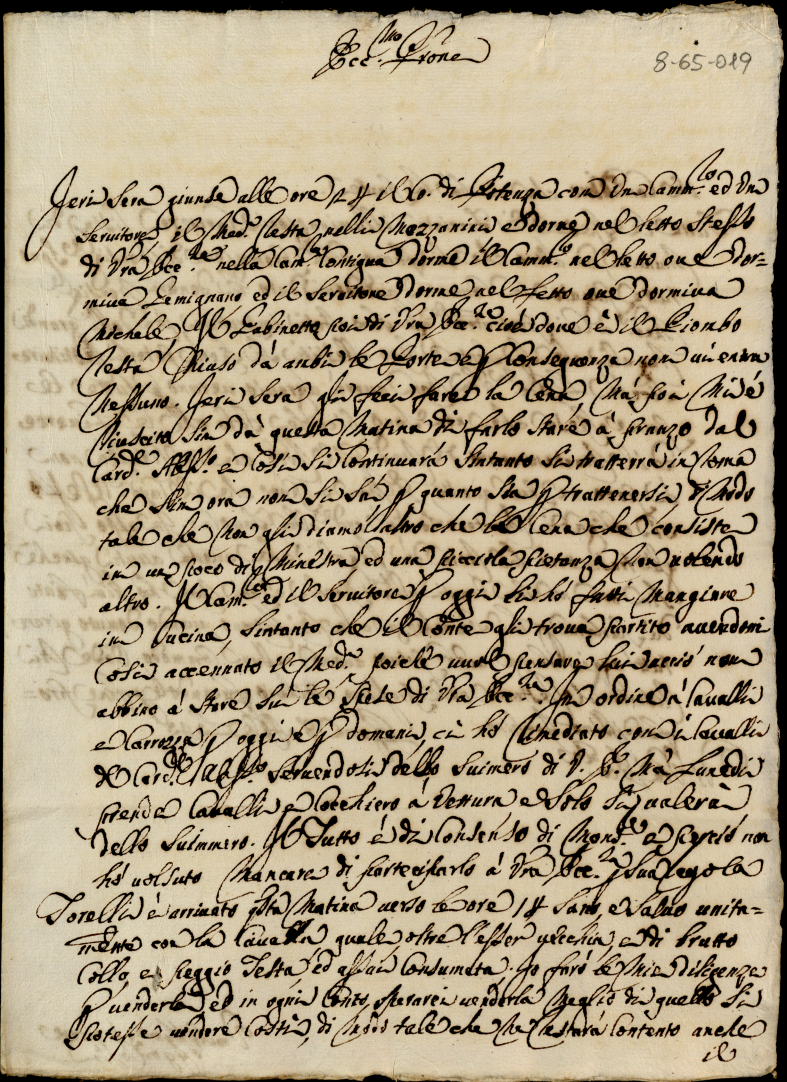 Ecc.mo Prone
8-65-019
Jeri Sera giunse alle ore 24 il C. di Potenza con Un Camm.ro ed Un
Servitore, il Med.o resta nelli Mezzanini e dorme nel letto Stesso
di Vra Ecc.za nella Cam.a Contigua dorme il Camm.o nel letto oue dor=
miua Gemignano ed il Servitore dorme nel Letto oue dormiua
Michele, Il Gabinetto poi di Vra Ecc.za cioé doue è il Piombo
resta Chiuso dà ambi le Porte e p Conseguenza non ui entra
Nessuno. Jeri Sera gli feci fare la Cena, Má poi Mi é
riuscito Sin dá questa Matina di farlo Stare à pranzo dal
Card. e Cosi Si Continuará Sintanto Si tratterrà in Roma
che Sin ora non Si Sá p quanto Sia p trattenersi, di Modo
tale che Non gli diamo altro che la Cena che Consiste
in un poco di Ministra ed una piccola pietanza Non uolendo
altro. Il Cam.o ed il Servitore p oggi li hó fatti Mangiare
in Cucina, Sintanto che il Conte gli troua partito auendomi
Cosi accennato il Med.o poiché uuol pensare lui acció non
abbino á Stare Sú le Spese di Vra Ecc.za. In ordine á Caualli
e Carrozza p oggi e p domani, ci hó rimediato con i Caualli
del Card.le Seruendosi dello Suimero di V. E. Má Lunedi
prende Caualli e Cocchiero á Vettura e Solo Si ualerà
dello Suimmero. Il Tutto é di Consenso di Mons.e e perció non
hó uolsuto Mancare di parteciparlo á Vra Ecc.za p Sua regola
Torelli é arriuato q.sta Matina uerso le ore 14 Sano, e Saluo unita=
mente con la Caualla quale oltre l'esser uecchia, e di brutto
Collo, e peggio Testa ed assai Consumata. Io faró le Mie diligenze
p uenderla ed in ogni Conto, sperarei uenderla Meglio di quello Si
potesse uendere Costì, di Modo tale che Ne restará Contento anche
il